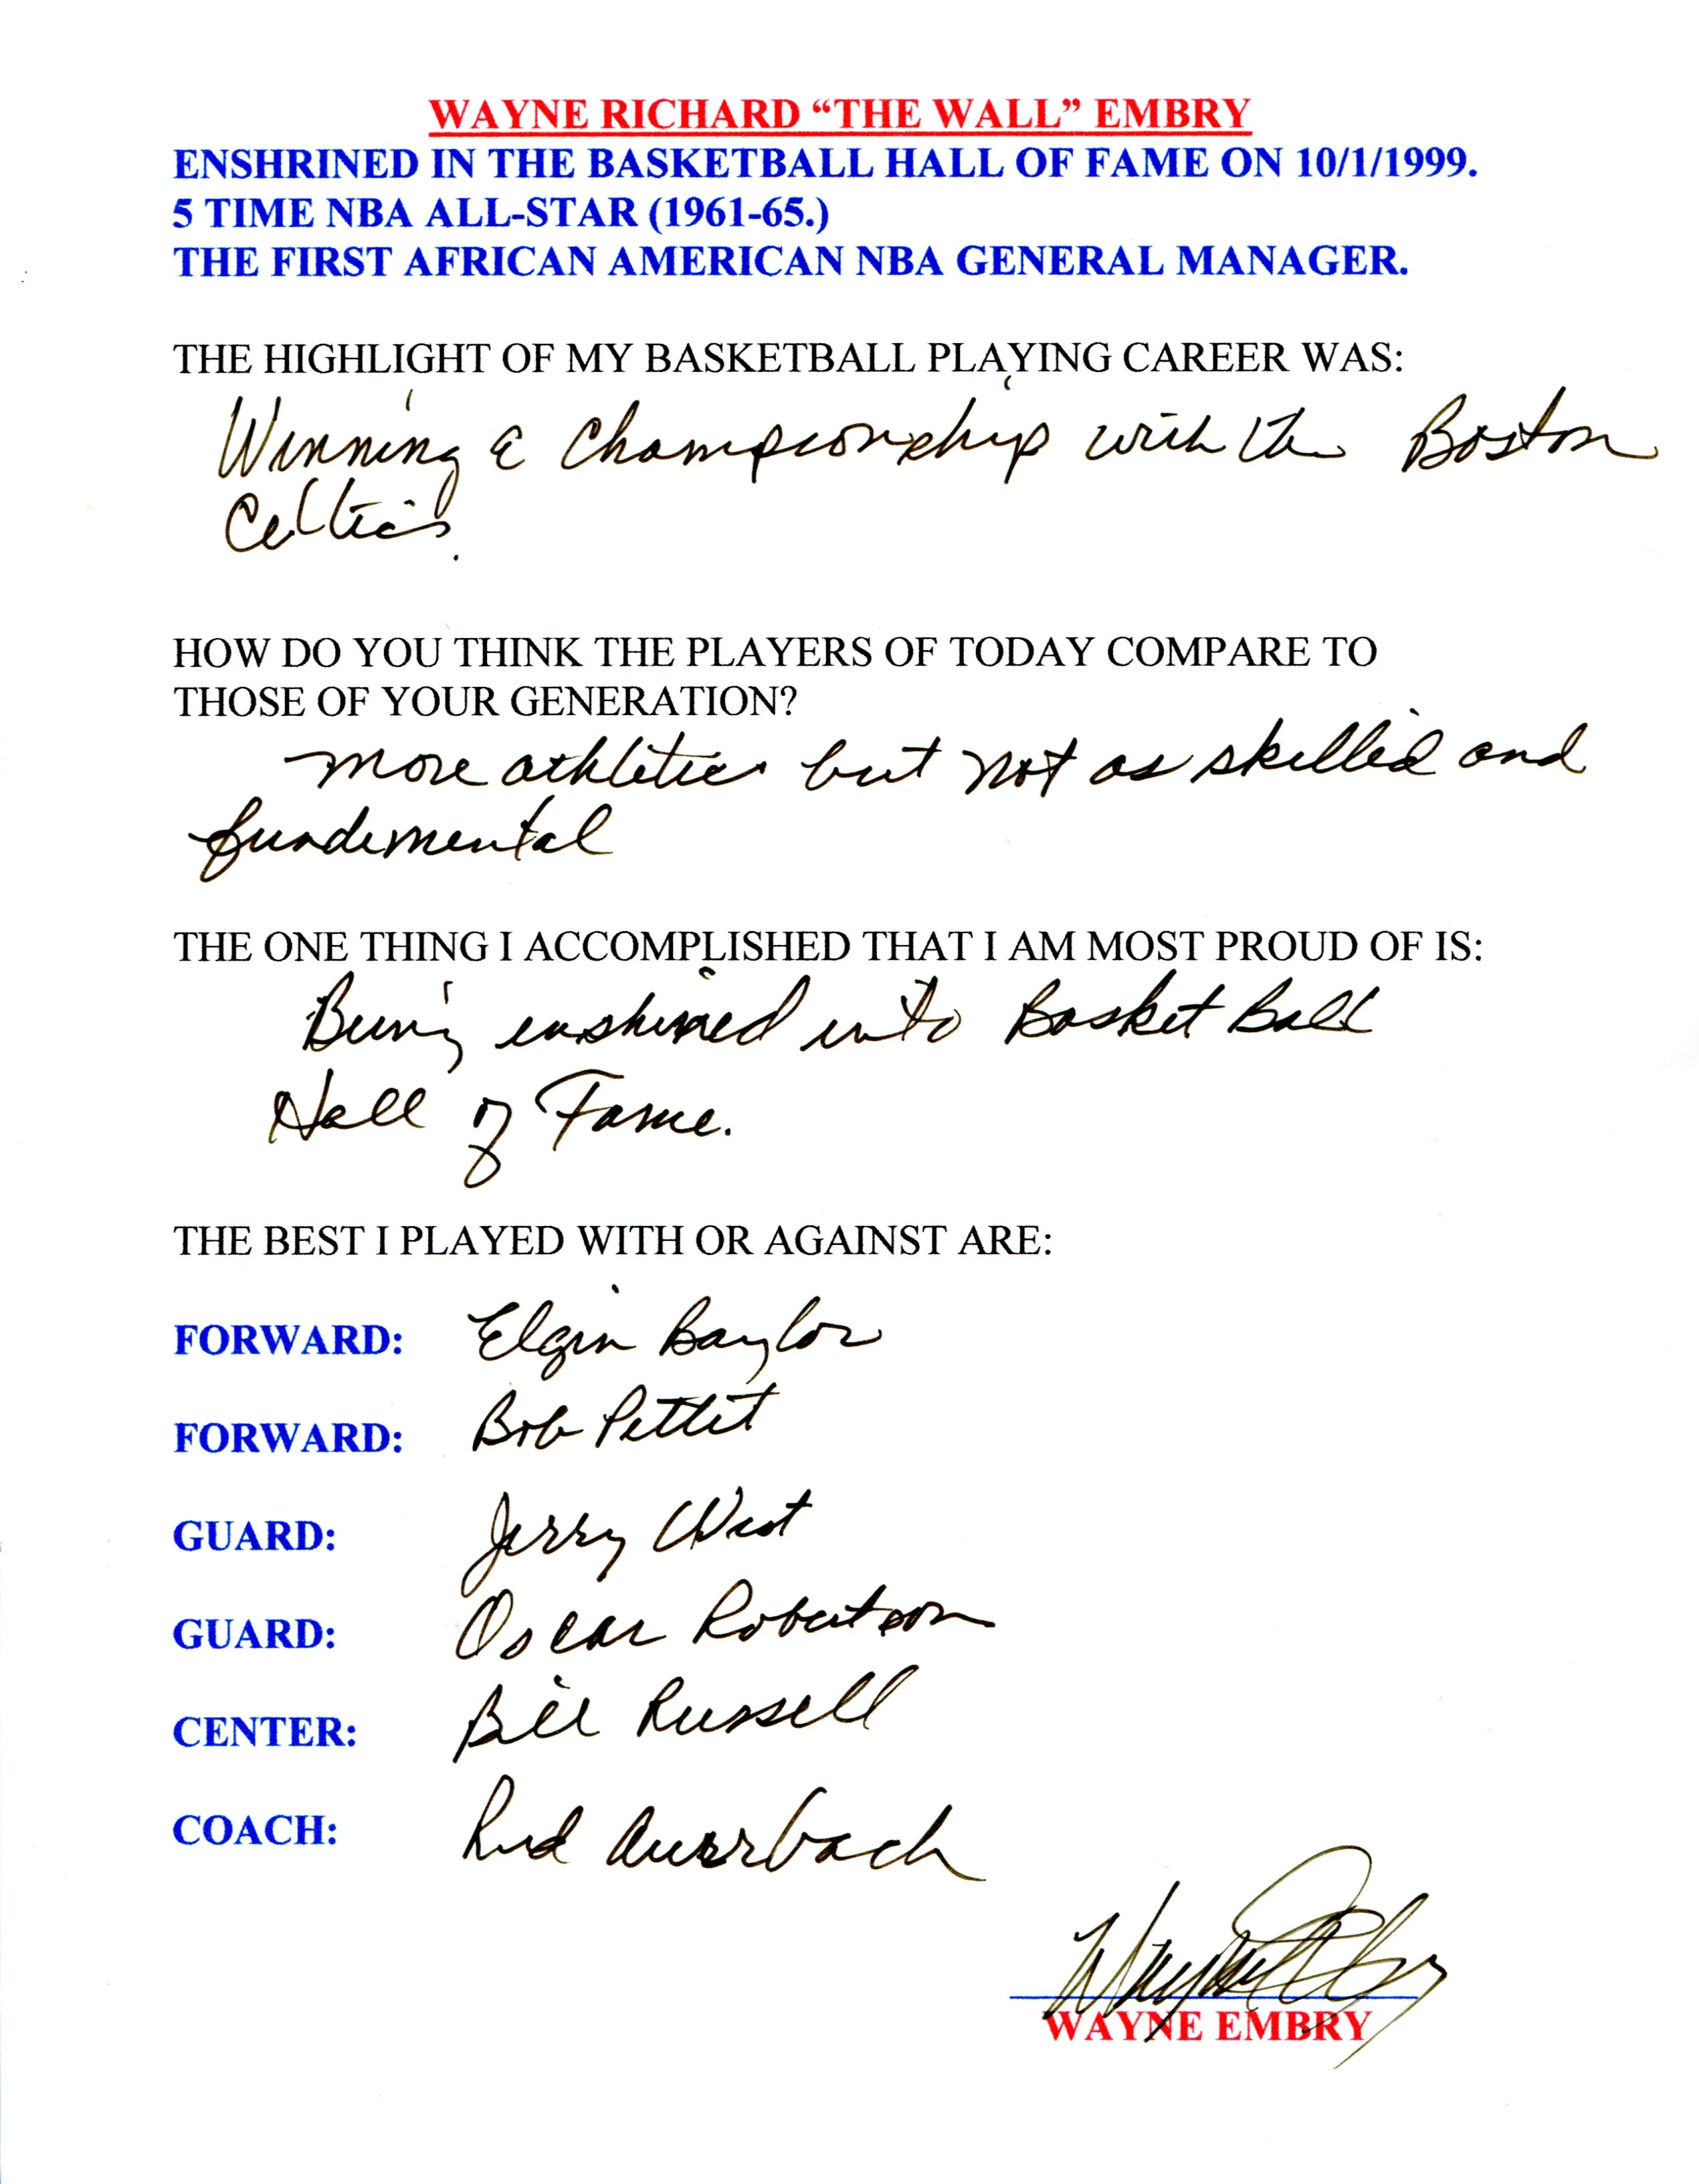 WAYNE RICHARD “THE WALL” EMBRY
ENSHRINED IN THE BASKETBALL HALL OF FAME ON 10/1/1999.
5 TIME NBA ALL-STAR (1961-65.)
THE FIRST AFRICAN AMERICAN NBA GENERAL MANAGER.
THE HIGHLIGHT OF MY BASKETBALL PLAYING CAREER WAS:
Winning a Championship with the Boston
Celtics.
HOW DO YOU THINK THE PLAYERS OF TODAY COMPARE TO
THOSE OF YOUR GENERATION?
more athletic but not as skilled and
fundemental
THE ONE THING I ACCOMPLISHED THAT I AM MOST PROUD OF IS:
Being enshined into Basket Ball
Hall of Fame.
THE BEST I PLAYED WITH OR AGAINST ARE:
FORWARD: Elgin Baylor
FORWARD: Bob Pettit
GUARD: Jerry West
GUARD: Oscar Robertson
CENTER: Bill Russell
COACH: Red Auerbach
Wayne Embry
WAYNE EMBRY